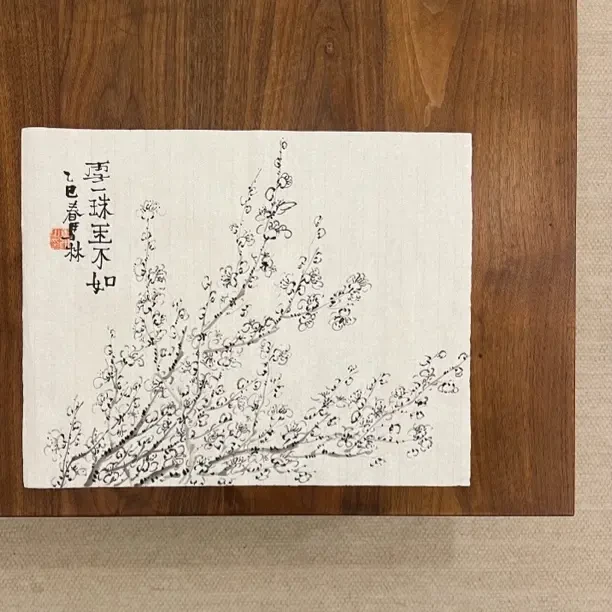 珠玉不如
乙巳春林